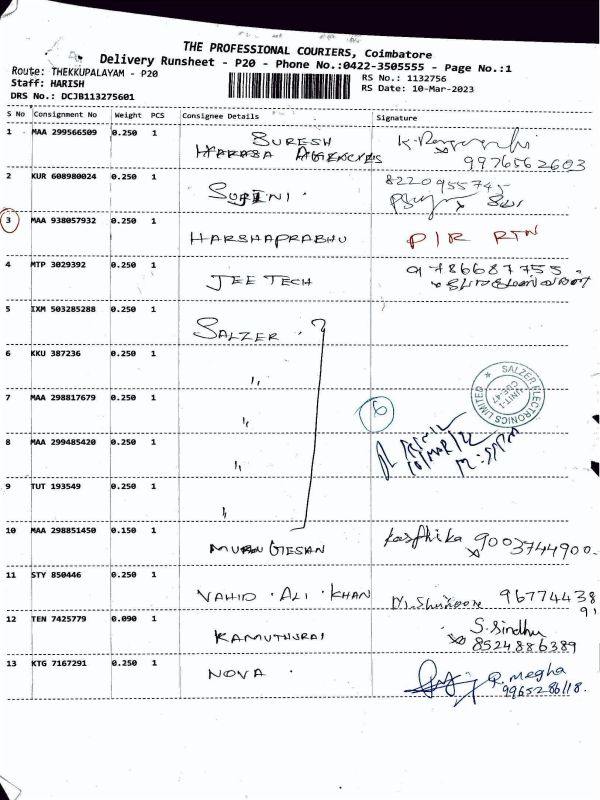 THE PROFESSIONAL COURIERS, Coimbatore
Delivery Runsheet - P20 - Phone No.:0422-3505555 - Page No.:1
Route: THEKKUPALAYAM - P20
RS No.: 1132756
Staff: HARISH
RS Date: 10-Mar-2023
DRS No.: DCJB113275601
S No Consignment No Weight PCS Consignee Details Signature
1 MAA 299566509 0.250 1 SURESH
9976562603
2 KUR 608980024 0.250 1 8220955745
3 MAA 938057932 0.250 1 HARSHAPRABHU P/R RTN
4 MTP 3029392 0.250 1 JEE TECH 9786687755
5 IXM 503285288 0.250 1 SALZER
6 KKU 387236 0.250 1 "
7 MAA 298817679 0.250 1 " 6
SALZER ELECTRONICS LIMITED
UNIT-1
CBE-47
8 MAA 299485420 0.250 1 "
9 TUT 193549 0.250 1 "
10 MAA 298851450 0.150 1 MURUGESAN 9003744900
11 STY 850446 0.250 1 VAHID ALI KHAN 96774438
91
12 TEN 7425779 0.090 1 S. Sindhu
8524886389
13 KTG 7167291 0.250 1 NOVA R. Megha
9965286118.